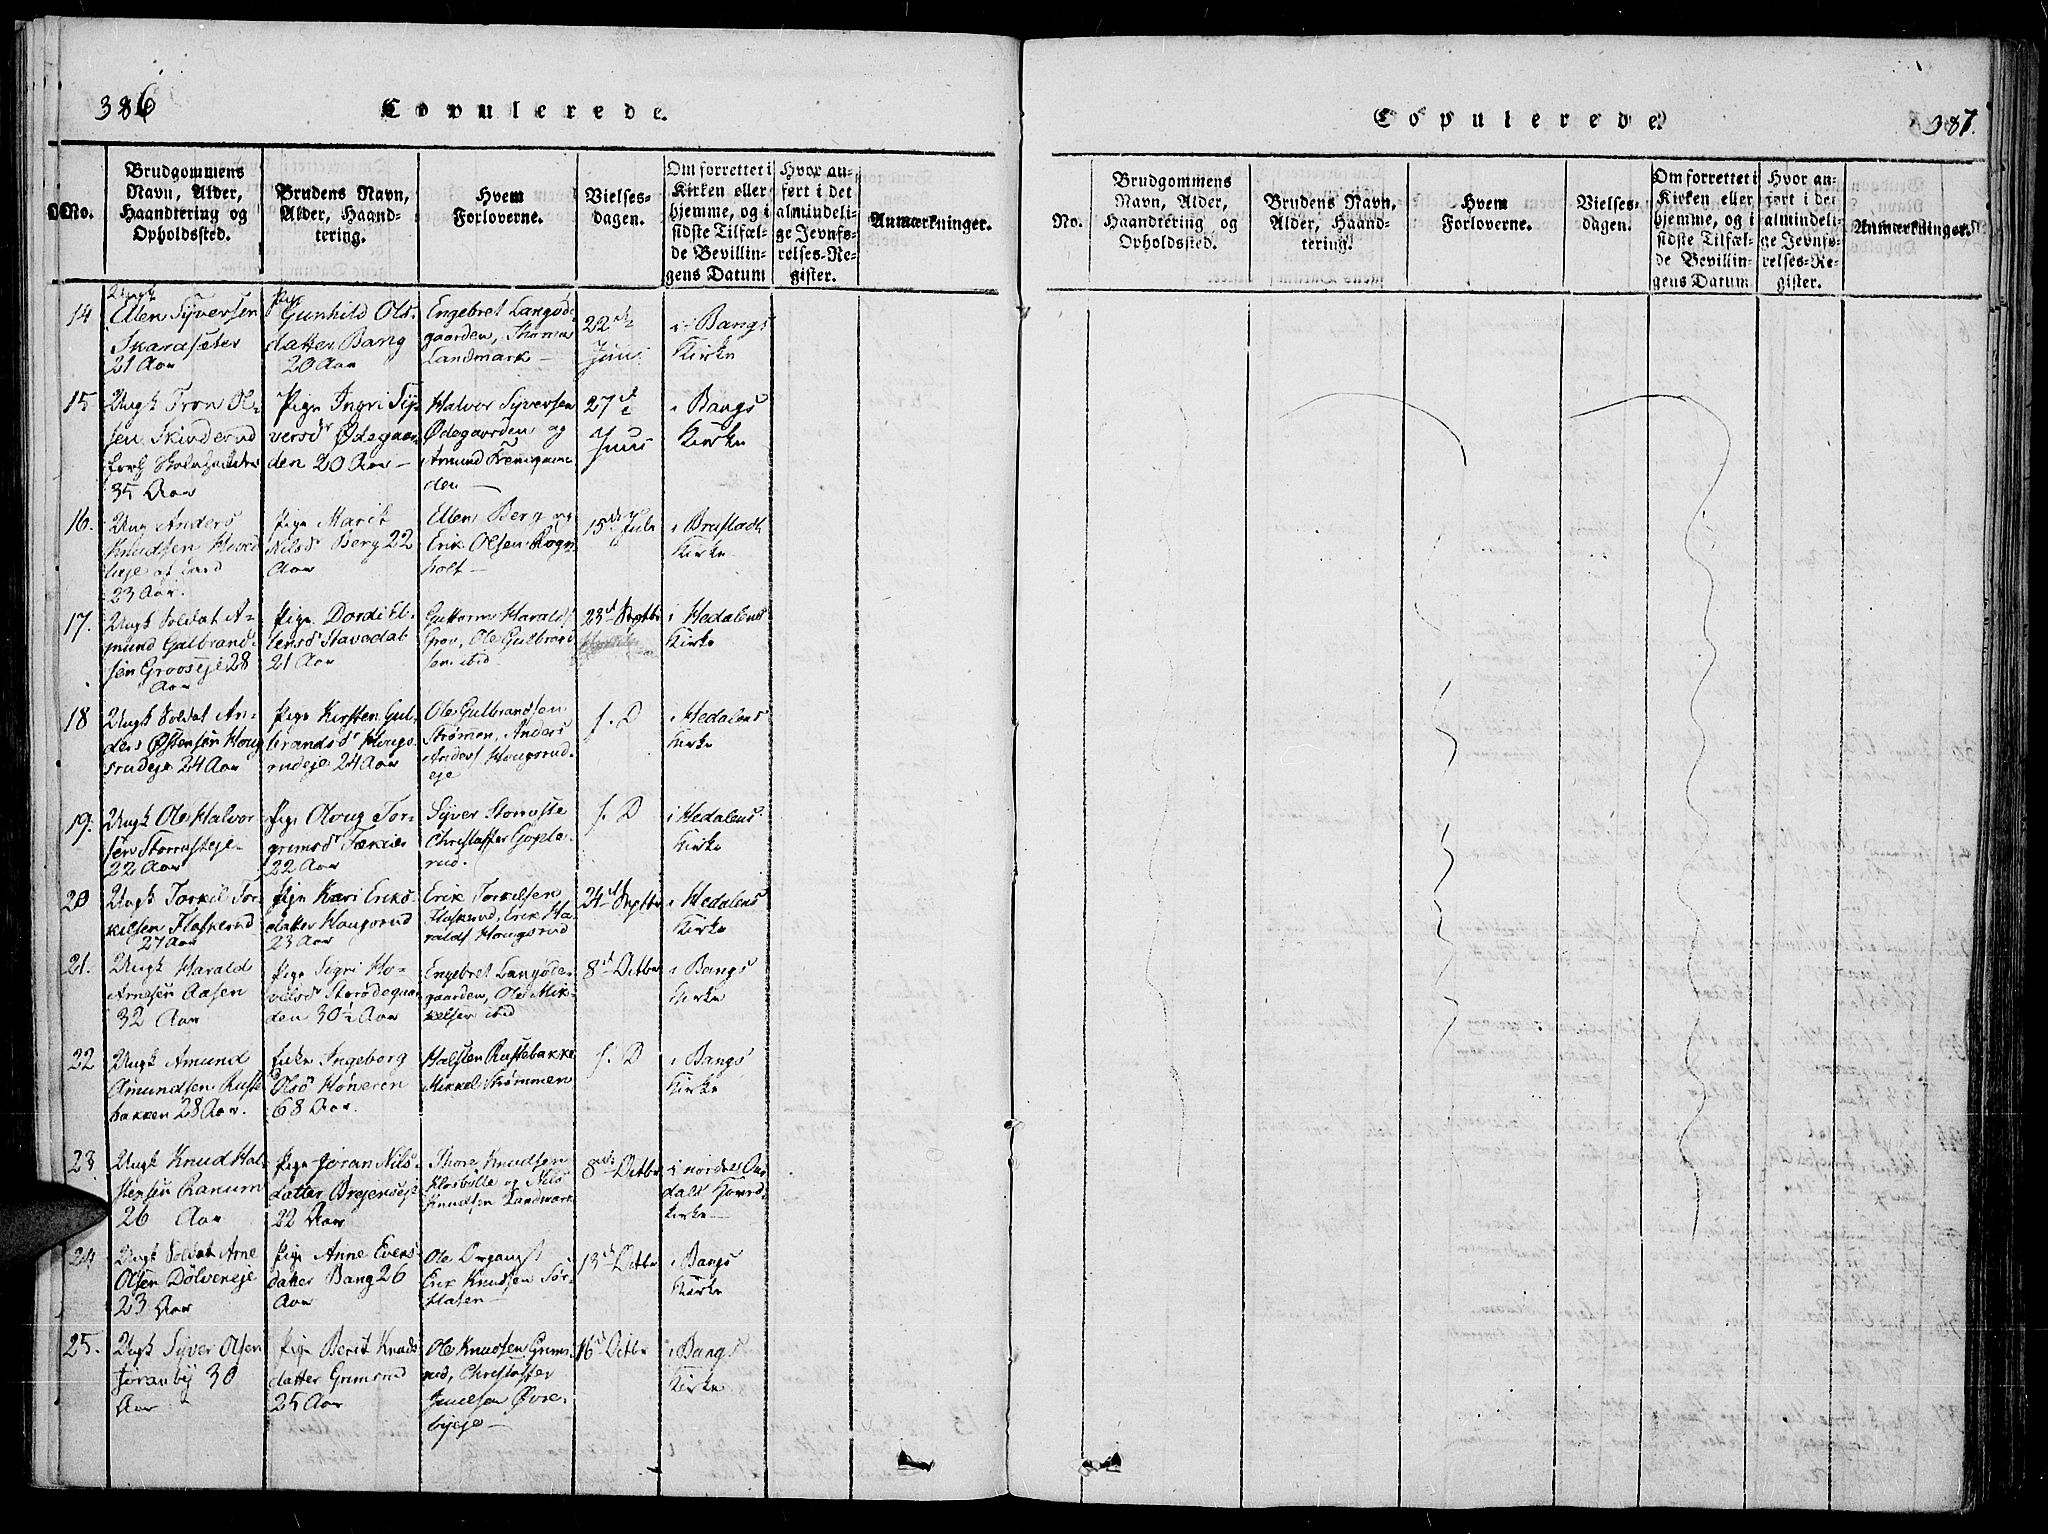 386
Copulerede.
No.
Brudgommens
Navn, Alder,
Haandtering og
Opholdssted.
Brudens Navn,
Alder, Haand-
tering.
Hvem
Forloverne.
Vielses-
dagen.
Om forrettet i
Kirken eller
hjemme, og i
sidste Tilfæl-
de Bevillin-
gens Datum
Hvor an-
ført i det
almindeli-
ge Jevnfø-
relses-Re-
gister.
Anmærkninger.
14
Ungk
Ellen Syversen
Skardseter
21 Aar
Pige
Gunhild Ols-
datter Bang
20 Aar
Engebret Langød-
gaarden, Thomas
Landmark
22de
Juni
i Bangs
Kirke
15
Ungk Tron Ol-
sen Skinderud
35 Aar
Pige Ingri Sy-
versdr Ødegaar-
den 20 Aar
Halvor Syversen
Ødegaarden og
Amund
den
27de
Juni
i Bangs
Kirke
16.
Ung Anders
Knudsen
23 Aar.
Pige Marit
Nilsdr Berg 22
Aar
Ellen Berg og
Erik Olsen Rogn
holt
15de Juli
i Brustads
Kirke
17.
Ungk Soldat A-
mund Gulbrand-
sen Grooseje 28
Aar
Pige Dordi El-
lensdr Stavedal
21 Aar
Guttorm Harald
Grov, Ole Gulbrand
sen ibid
23de Septbr
i Hedalens
Kirke
18
Ungk Soldat An-
ders Østensen Houg
srudeje 24 Aar
Pige Kirsten Gul
brandsdr Hougs-
rudeje 24 Aar
Ole Gulbrandsen
Strømen, Anders
Anders Hougsrud-
eje
s. D
i Hedalens
Kirke
19.
Ungk Ole Halvor
sen Storrusteje
22 Aar
Pige Oloug Tor-
grimsdr
22 Aar
Syver Storruste
Christoffer Gople-
rud.
s. D
i Hedalens
Kirke
20
Ungk Torkil Tor-
kilsen Flaskerud
27 Aar
Pige Kari Eriks-
datter Hougsrud
23 Aar
Erik Torkilsen
Flaskrud, Erik Ha-
ralds Hougsrud
24de Septbr
i Hedalens
Kirke
21.
Ungk Harald
Arnesen Aasen
32 Aar
Pige Sigri Ho-
velsdr Storødegaar
den 30½ Aar
Engebret Langøde-
gaarden, Ole Mik-
kelsen ibid
8de Octbr
i Bangs
Kirke
22
Ungk Amund
Amundsen Ruste
bakken 28 Aar.
Enke Ingeborg
Olsdr Hőneren
68 Aar.
Halsten Rustebakke
Mikkel Strømmen
s. D
i Bangs
Kirke
23
Ungk Knud Hal-
stensen Ranum
26 Aar
Pige Jøran Nils-
datter Brejenseje
22 Aar
Thore Knudsen
Klosbølle og Nils
Knudsen Landmark
8de Octbr
i nordre Aur
dals Hoved
kirke
24
Ungk Soldat Arne
Olsen Dölveneje
23 Aar
Pige Anne Evens
datter Bang 26
Aar
Ole
Erik Knudsen Sör-
flaten
13de Octbr
i Bangs
Kirke
25.
Ungk Syver Olsen
Joranby 30
Aar
Pige Berit Knuds
datter Grimsrud
25 Aar
Ole Knudsen Grims
rud, Christoffer
Juulsen Øvre-
byeje
16de Octbr
i Bangs
Kirke
387.
Copulerede.
No.
Brudgommens
Navn, Alder,
Haandtering og
Opholdssted.
Brudens Navn,
Alder, Haand-
tering.
Hvem
Forloverne.
Vielses-
dagen.
Om forrettet i
Kirken eller
hjemme, og i
sidste Tilfæl-
de Bevillin-
gens Datum
Hvor an-
ført i det
almindeli-
ge Jevnfø-
relses-Re-
gister.
Anmærkninger.